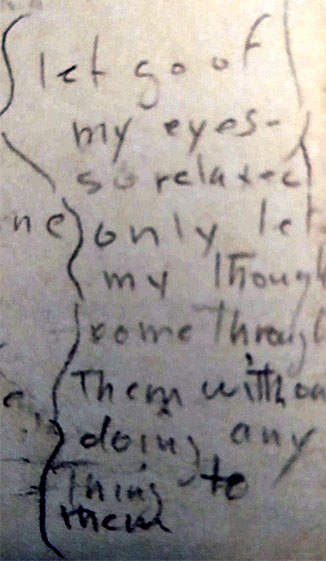 let go of
my eyes-
so relaxed
ne) only let
my though
come through
Them withou
doing any
Thing to
them